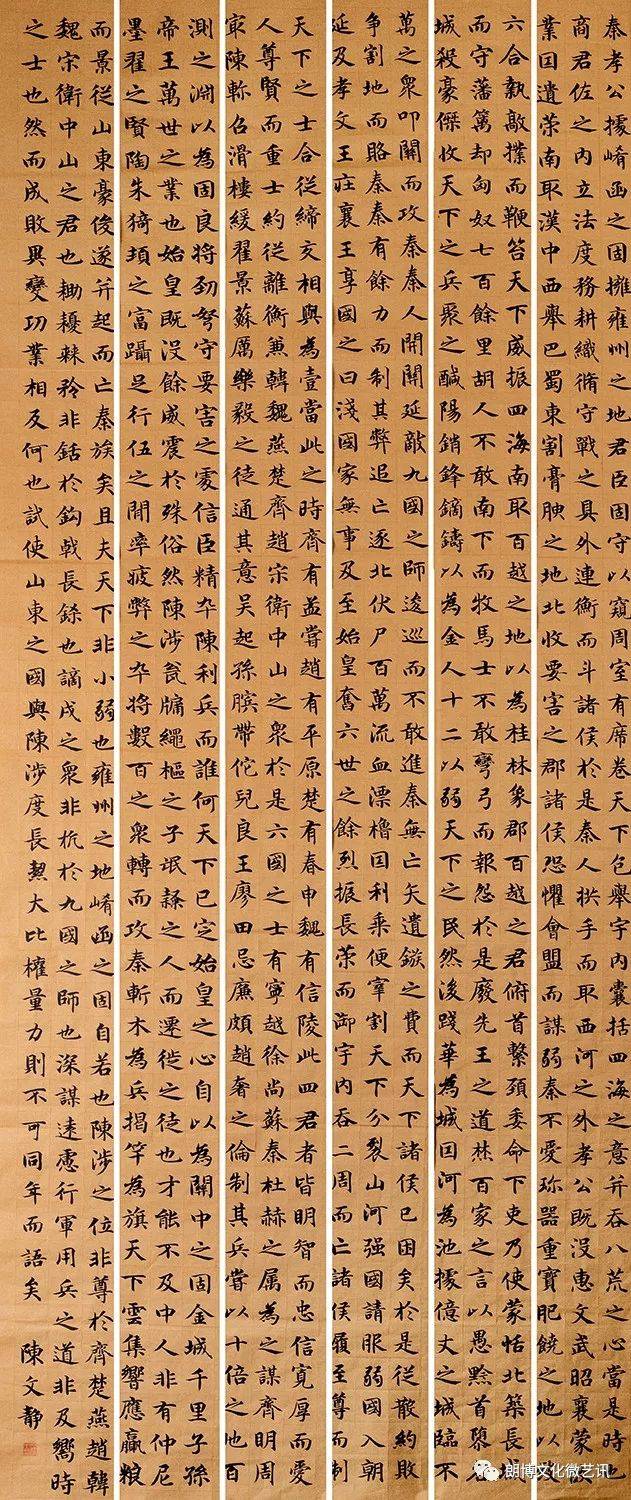 秦孝公據崤函之固擁雍州之地君臣固守以窺周室有席卷天下包舉宇內囊括四海之意并吞八荒之心當是時也
商君佐之內立法度務耕織脩守戰之具外連衡而斗諸侯於是秦人拱手而取西河之外孝公既沒惠文武昭襄蒙故
業因遺策南取漢中西舉巴蜀東割膏腴之地北收要害之郡諸侯恐懼會盟而謀弱秦不愛珍器重寶肥饒之地以致
六合執敲撲而鞭笞天下威振四海南取百越之地以為桂林象郡百越之君俯首繫頸委命下吏乃使蒙恬北築長城
而守藩籬却匈奴七百餘里胡人不敢南下而牧馬士不敢彎弓而報怨於是廢先王之道焚百家之言以愚黔首隳名
城殺豪傑收天下之兵聚之醎陽銷鋒鏑鑄以為金人十二以弱天下之民然後踐華為城因河為池據億丈之城臨不
萬之眾叩關而攻秦秦人開關延敵九國之師逡巡而不敢進秦無亡矢遺鏃之費而天下諸侯已困矣於是從散約敗
爭割地而賂秦秦有餘力而制其弊追亡逐北伏尸百萬流血漂櫓因利乘便宰割天下分裂山河强國請服弱國入朝
延及孝文王莊襄王享國之日淺國家無事及至始皇奮六世之餘烈振長策而御宇內吞二周而亡諸侯履至尊而制
天下之士合從締交相與為壹當此之時齊有孟嘗趙有平原楚有春申魏有信陵此四君者皆明智而忠信寬厚而愛
人尊賢而重士約從離衡兼韓魏燕楚齊趙宋衛中山之眾於是六國之士有甯越徐尚蘇秦杜赫之属為之謀齊明周
最陳軫召滑樓緩翟景蘇厲樂毅之徒通其意吳起孫臏帶佗兒良王廖田忌廉頗趙奢之倫制其兵嘗以十倍之地百
測之淵以為固良將勁弩守要害之處信臣精卒陳利兵而誰何天下已定始皇之心自以為關中之固金城千里子孫
帝王萬世之業也始皇既沒餘威震於殊俗然陳涉瓮牖繩樞之子氓隸之人而遷徙之徒也才能不及中人非有仲尼
墨翟之賢陶朱猗頓之富躡足行伍之間率疲弊之卒將數百之眾轉而攻秦斬木為兵揭竿為旗天下雲集響應贏糧
而景從山東豪俊遂并起而亡秦族矣且夫天下非小弱也雍州之地崤函之固自若也陳涉之位非尊於齊楚燕趙韓
魏宋衛中山之君也耡耰棘矜非銛於鈎戟長鎩也謫戍之眾非抗於九國之師也深謀遠慮行軍用兵之道非及嚮時
之士也然而成敗異變功業相及何也試使山東之國與陳涉度長絜大比權量力則不可同年而語矣 陳文靜
朗博文化微艺讯